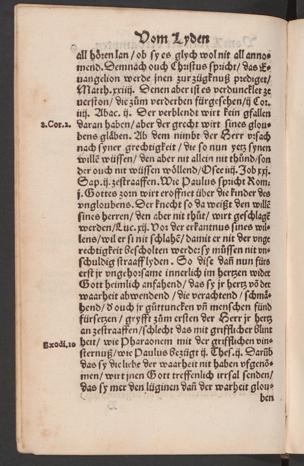 Vom Lyden
all hören lan / ob sy es glych wol nit all anno-
mend. Dennach ouch Christus spricht / das E-
uangelion werde jnen zur zügknuß prediget /
Matth. xxiiij. Denen aber ist es verduncklet ze
verston / die zům verderben fürgesehen / ij Cor.
iiij. Abac. ij. Der verblendt wirt kein gfallen
2. Cor. 2. daran haben / aber der grecht wirt sines glou-
bens gläben. Ab dem nimbt der Herr vrsach
nach syner grechtigkeit / die so nun yetz synen
willē wüssen / den aber nit allein nit thünd / son
der ouch nit wüssen wöllend / Osee iiij. Job xxj.
Sap. ij. zestraaffen. Wie Paulus spricht Rom.
j. Gottes zorn wirt eröffnet über die kinder des
vngloubens. Der knecht so da weißt den willē
sines herren / den aber nit thůt / wirt geschlagē
werden / Luc. xij. Vor der erkantnus sines wil-
lens / wil er si nit schlahē / damit er nit der vnge
rechtigkeit bescholten werde: sy müssen nit vn-
schuldig straaff lyden. So dise dañ nun fürs
erst jr vngehorsame innerlich im hertzen wider
Gott heimlich anfahend / das sy jr hertz võ der
waarheit abwendend / die verachtend / schmä-
hend / d ouch jr gůttuncken vñ menschen fünd
fürsetzen / gryfft zům ersten der Herr jr hertz
an zestraaffen / schlecht das mit grifflicher blint
Exodi. 10 heit / wie Pharaonem mit der grifflichen vin-
sternuß / wie Paulus bezügt ij. Thes. ij. Darüb
das sy die liebe der waarheit nit haben vfgenõ-
men / wirt jnen Gott treffenlich irrsal senden /
das sy mer den lüginen dañ der warheit glou-
ben